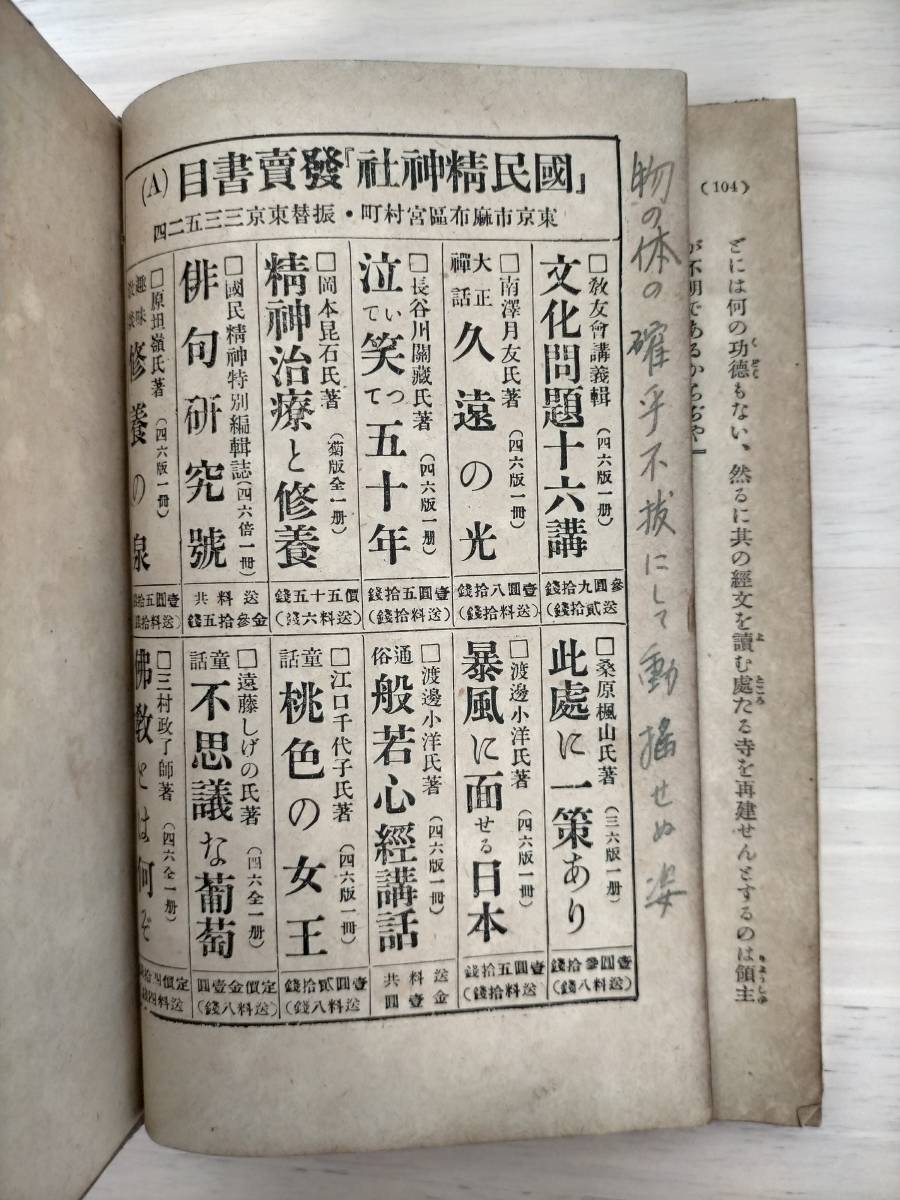 (104)
どには何の功德もない、然るに其の經文を讀む處たる寺を再建せんとするのは領主
くどく
よ
ところ
りようしゆ
が不明であるからぢや」
物の体の確乎不抜にして動揺せぬ姿
「國民精神社」發賣書目(A)
東京市麻布區宮村町・振替東京三三五二四
□敎友會講義輯(四六版一册)
文化問題十六講
參圓九拾錢
(送貳拾錢)
□南澤月友氏著(四六版一冊)
大正禪話 久遠の光
壹圓八拾錢
(送料拾錢)
□長谷川關藏氏著(四六版一册)
泣いて笑つて五十年
壹圓五拾錢
(送料拾錢)
□岡本昆石氏著(菊版全一册)
精神治療と修養
價五十五錢
(送料六錢)
□國民精神特別編輯誌(四六倍一冊)
俳句硏究號
送料共
金參拾五錢
□原坦嶺氏著(四六版一冊)
趣味敎談 修養の泉
壹圓五拾
(送料拾
□桑原楓山氏著(三六版一册)
此處に一策あり
壹圓參拾錢
(送料八錢)
□渡邊小洋氏著(四六版一冊)
暴風に面せる日本
壹圓五拾錢
(送料拾錢)
□渡邊小洋氏著(四六版一冊)
通俗 般若心經講話
送料共
金壹圓
□江口千代子氏著(四六版一冊)
童話 桃色の女王
壹圓貳拾錢
(送料八錢)
□遠藤しげの氏著(四六全一册)
童話 不思議な葡萄
定價金壹圓
(送料八錢)
□三村政了師著(四六全一册)
佛敎とは何ぞ
定價四拾
(送料四